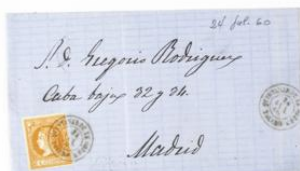 24 Jul. 60
S. D. Gregorio Rodriguez
Caba baja 22 y 24.
Madrid